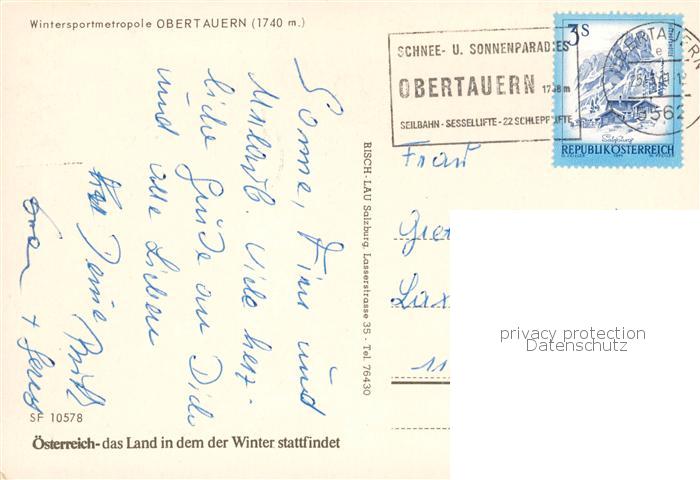 Wintersportmetropole OBERTAUERN (1740 m.)
SCHNEE- U. SONNENPARADIES
OBERTAUERN 1738 m
SEILBAHN - SESSELLIFTE - 22 SCHLEPPLIFTE
3S
OBERTAUERN
5562
Salzburg
REPUBLIK ÖSTERREICH
Sonne, und
Urlaub. Viele herz-
liche Grüße an Dich
und alle Lieben
Deine
Frau
RISCH-LAU Salzburg, Lasserstrasse 35 - Tel. 76430
privacy protection
Datenschutz
SF 10578
Österreich-das Land in dem der Winter stattfindet